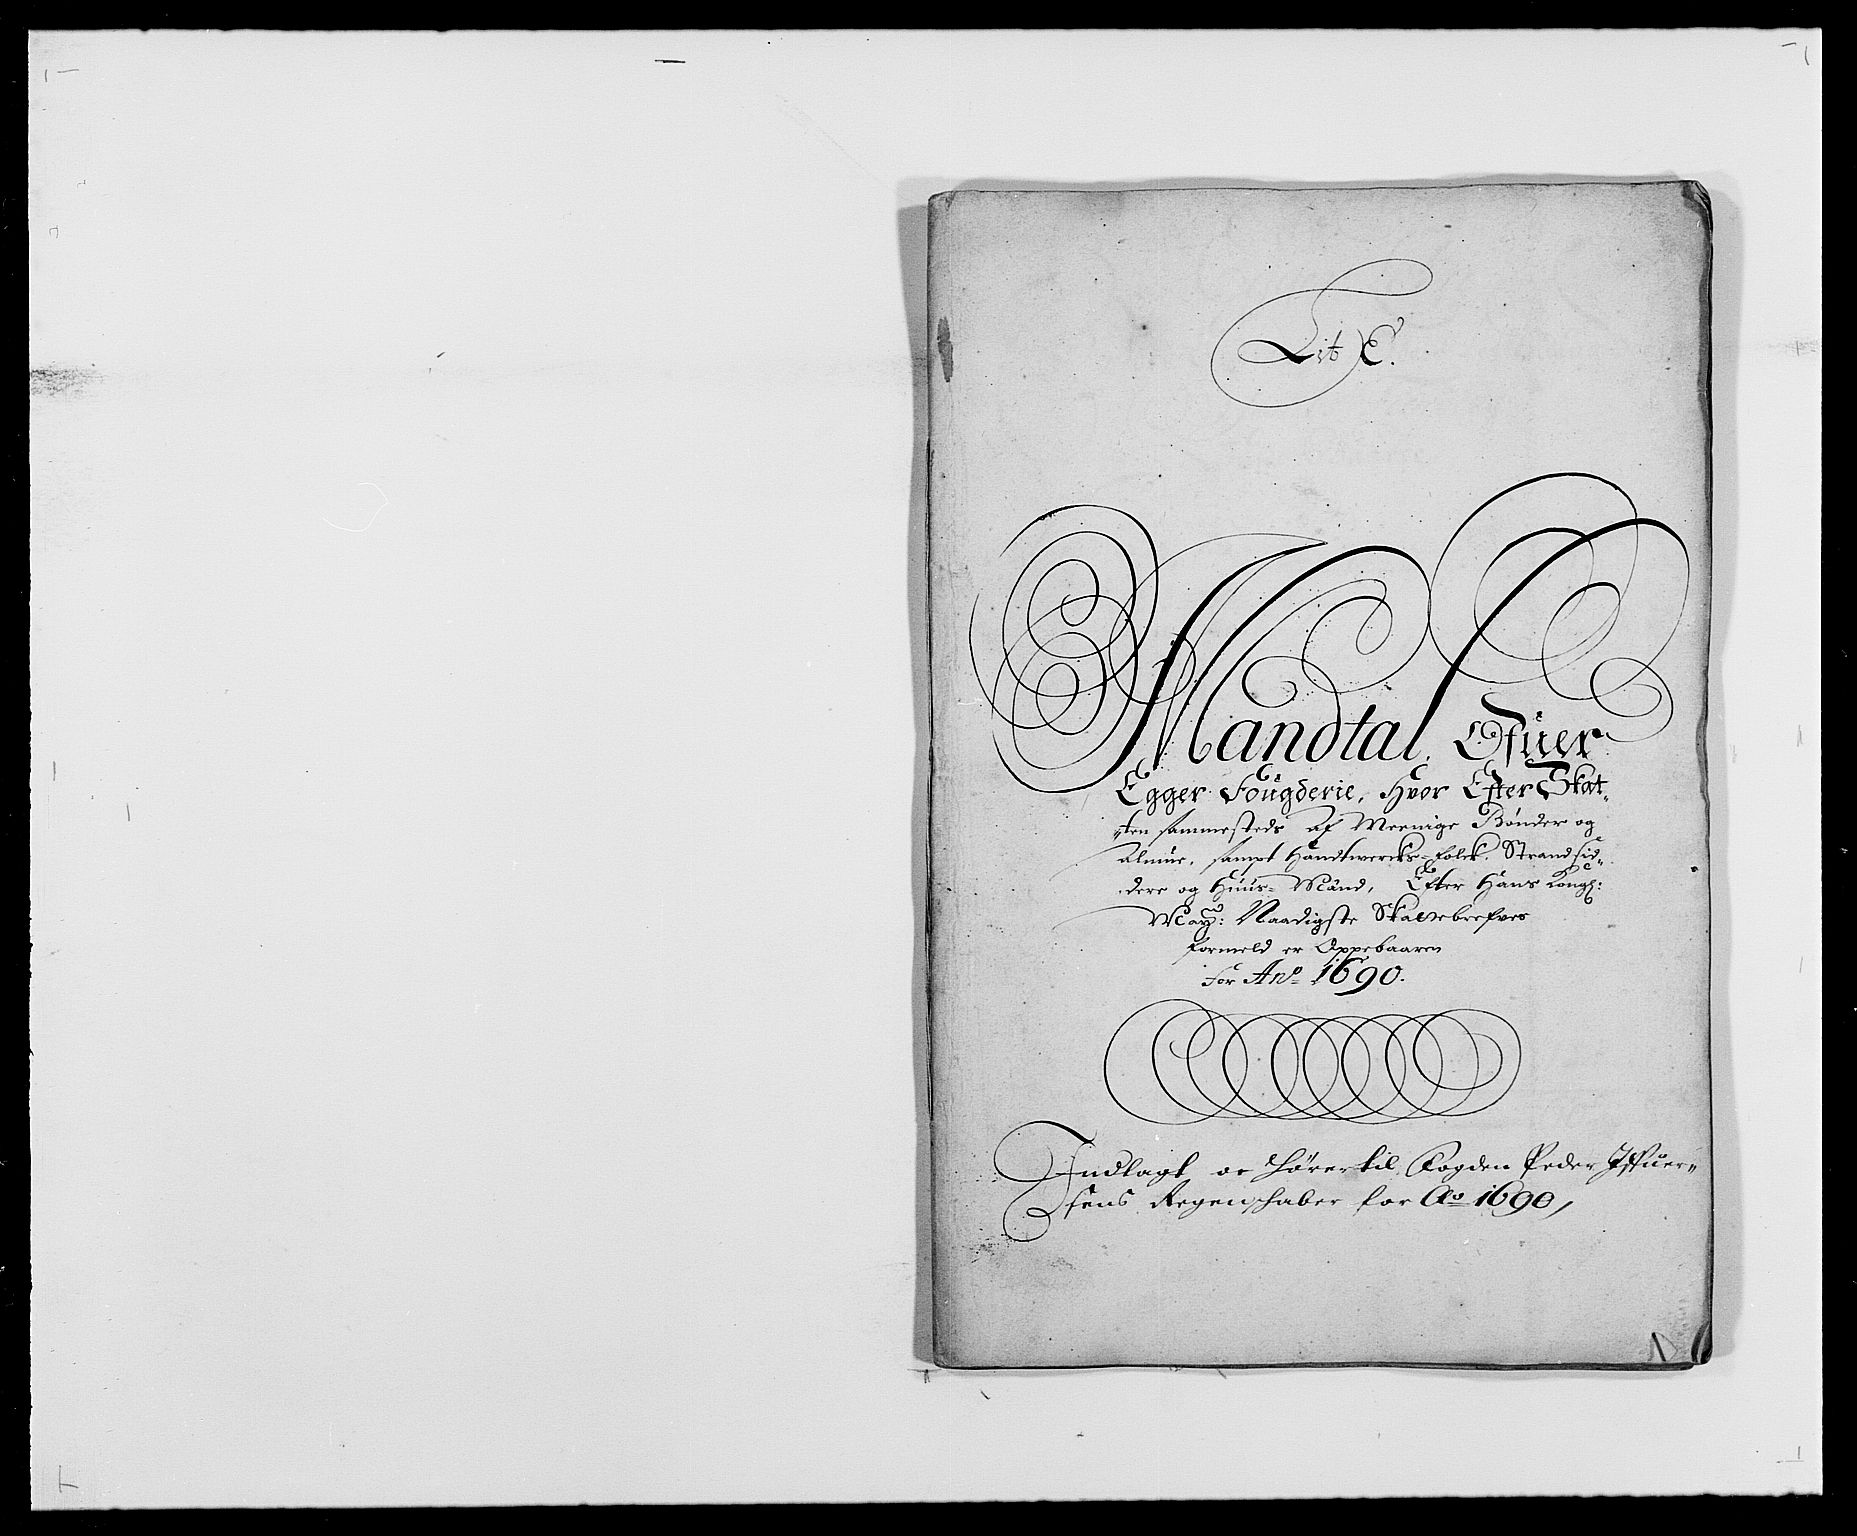 Lit E.
Mandtal Ofuer
Egger Fougderie, Hvor Efter Skat-
ten sammesteds af Meenige Bønder og
Almue, sampt Handtwercks-folck, Strandsid-
dere og Huus-Mænd, Efter Hans Kongl:
May: Naadigste Skattebrefves
formeld er Oppebaaren
for An° 1690.
Indlagt oc hører til Fogden Peder Iffuer-
sens Regenschaber for A° 1690,